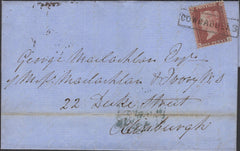 George Maclachlan Esqr
of Messrs Maclachlan & Ivory W.S.
22 Duke Street
Edinburgh